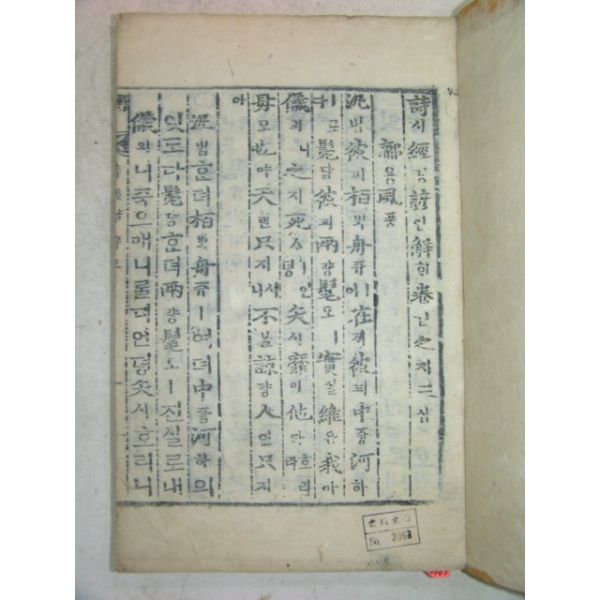 詩시經경諺언解ᄒᆡ卷권之지三삼
鄘용風풍
汎범彼피栢ᄇᆡᆨ舟쥬ㅣ在ᄌᆡ彼피中듕河하
髧담彼피兩량髦모ㅣ實실維유我아
儀의니之지死ᄉᆞ언뎡矢시靡미他타호리라
母모也야天텬只지시니不불諒량人인只지
아
汎범ᄒᆞᆫ뎌栢ᄇᆡᆨ舟쥬ㅣ여뎌中듕河하의
잇도다髧담ᄒᆞᆫ뎌兩량髦모ㅣ진실로내
儀의니죽으매니를디언뎡矢시호리니
No. 3063